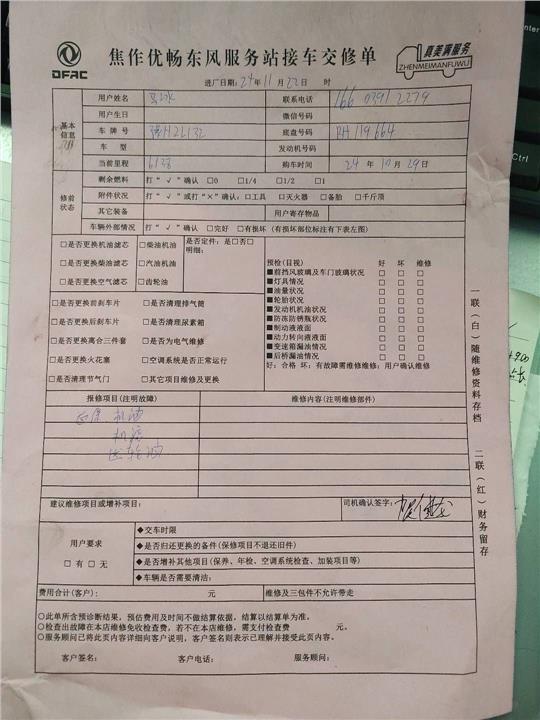 DFAC
焦作优畅东风服务站接车交修单
真美满服务
ZHENMEIMANFUWU
进厂日期：24年11月22日 时
基本信息
用户姓名 联系电话 166 0391 2279
用户生日 微信号码
车牌号 底盘号码 RH119664
车型 发动机号码
当前里程 6128 购车时间 24年10月29日
修前状态
剩余燃料 打“√”确认 □0 □1/4 □1/2 □1
附件状况 打“√”或打“×”确认：□工具 □灭火器 □备胎 □千斤顶
其它装备 用户寄存物品
车辆外部情况 打“√”确认 □完好 □有损坏（有损坏部位标注有下表左图）
□是否更换机油滤芯 □柴油机油 是否定件：是□否□
明细：
□是否更换柴油滤芯 □汽油机油
□是否更换空气滤芯 □齿轮油
□是否更换前刹车片 □是否清理排气筒
□是否更换后刹车片 □是否清理尿素箱
□是否更换离合三件套 □是否为电气维修
□是否更换火花塞 □空调系统是否正常运行
□是否清理节气门 □其它项目维修及更换
预检(目视) 好 坏 维修
■前挡风玻璃及车门玻璃状况 □ □ □
■灯具情况 □ □ □
■油量状况 □ □ □
■轮胎状况 □ □ □
■发动机机油状况 □ □ □
■防冻防锈瓶状况 □ □ □
■制动液液面 □ □ □
■动力转向液液面 □ □ □
■变速箱漏油情况 □ □ □
■后桥漏油情况 □ □ □
好：合格 坏：有故障需维修维修：用户确认维修
报修项目(注明故障) 维修内容(注明维修部件)
机油
机滤
齿轮油
建议维修项目或增补项目： 司机确认签字：
用户要求
□有 □无
◆交车时限
◆是否归还更换的备件(保修项目不退还旧件)
◆是否增补其他项目(保养、年检、空调系统检查、加装项目等)
◆车辆是否需要清洁：
费用合计(客户)： 元 维修及三包件不允许带走
○此单所含预诊断结果，预估费用及时间不做结算依据，结算以结算单为准。
○检查出故障在本店维修免收检查费，若不在本店维修，需支付检查费 元。
○服务顾问已将此页内容详细向客户说明，客户签名则表示已理解并接受此页内容。
客户签名： 客户电话： 服务顾问：
一联（白）随维修资料存档
二联（红）财务留存
Enter
Ctrl